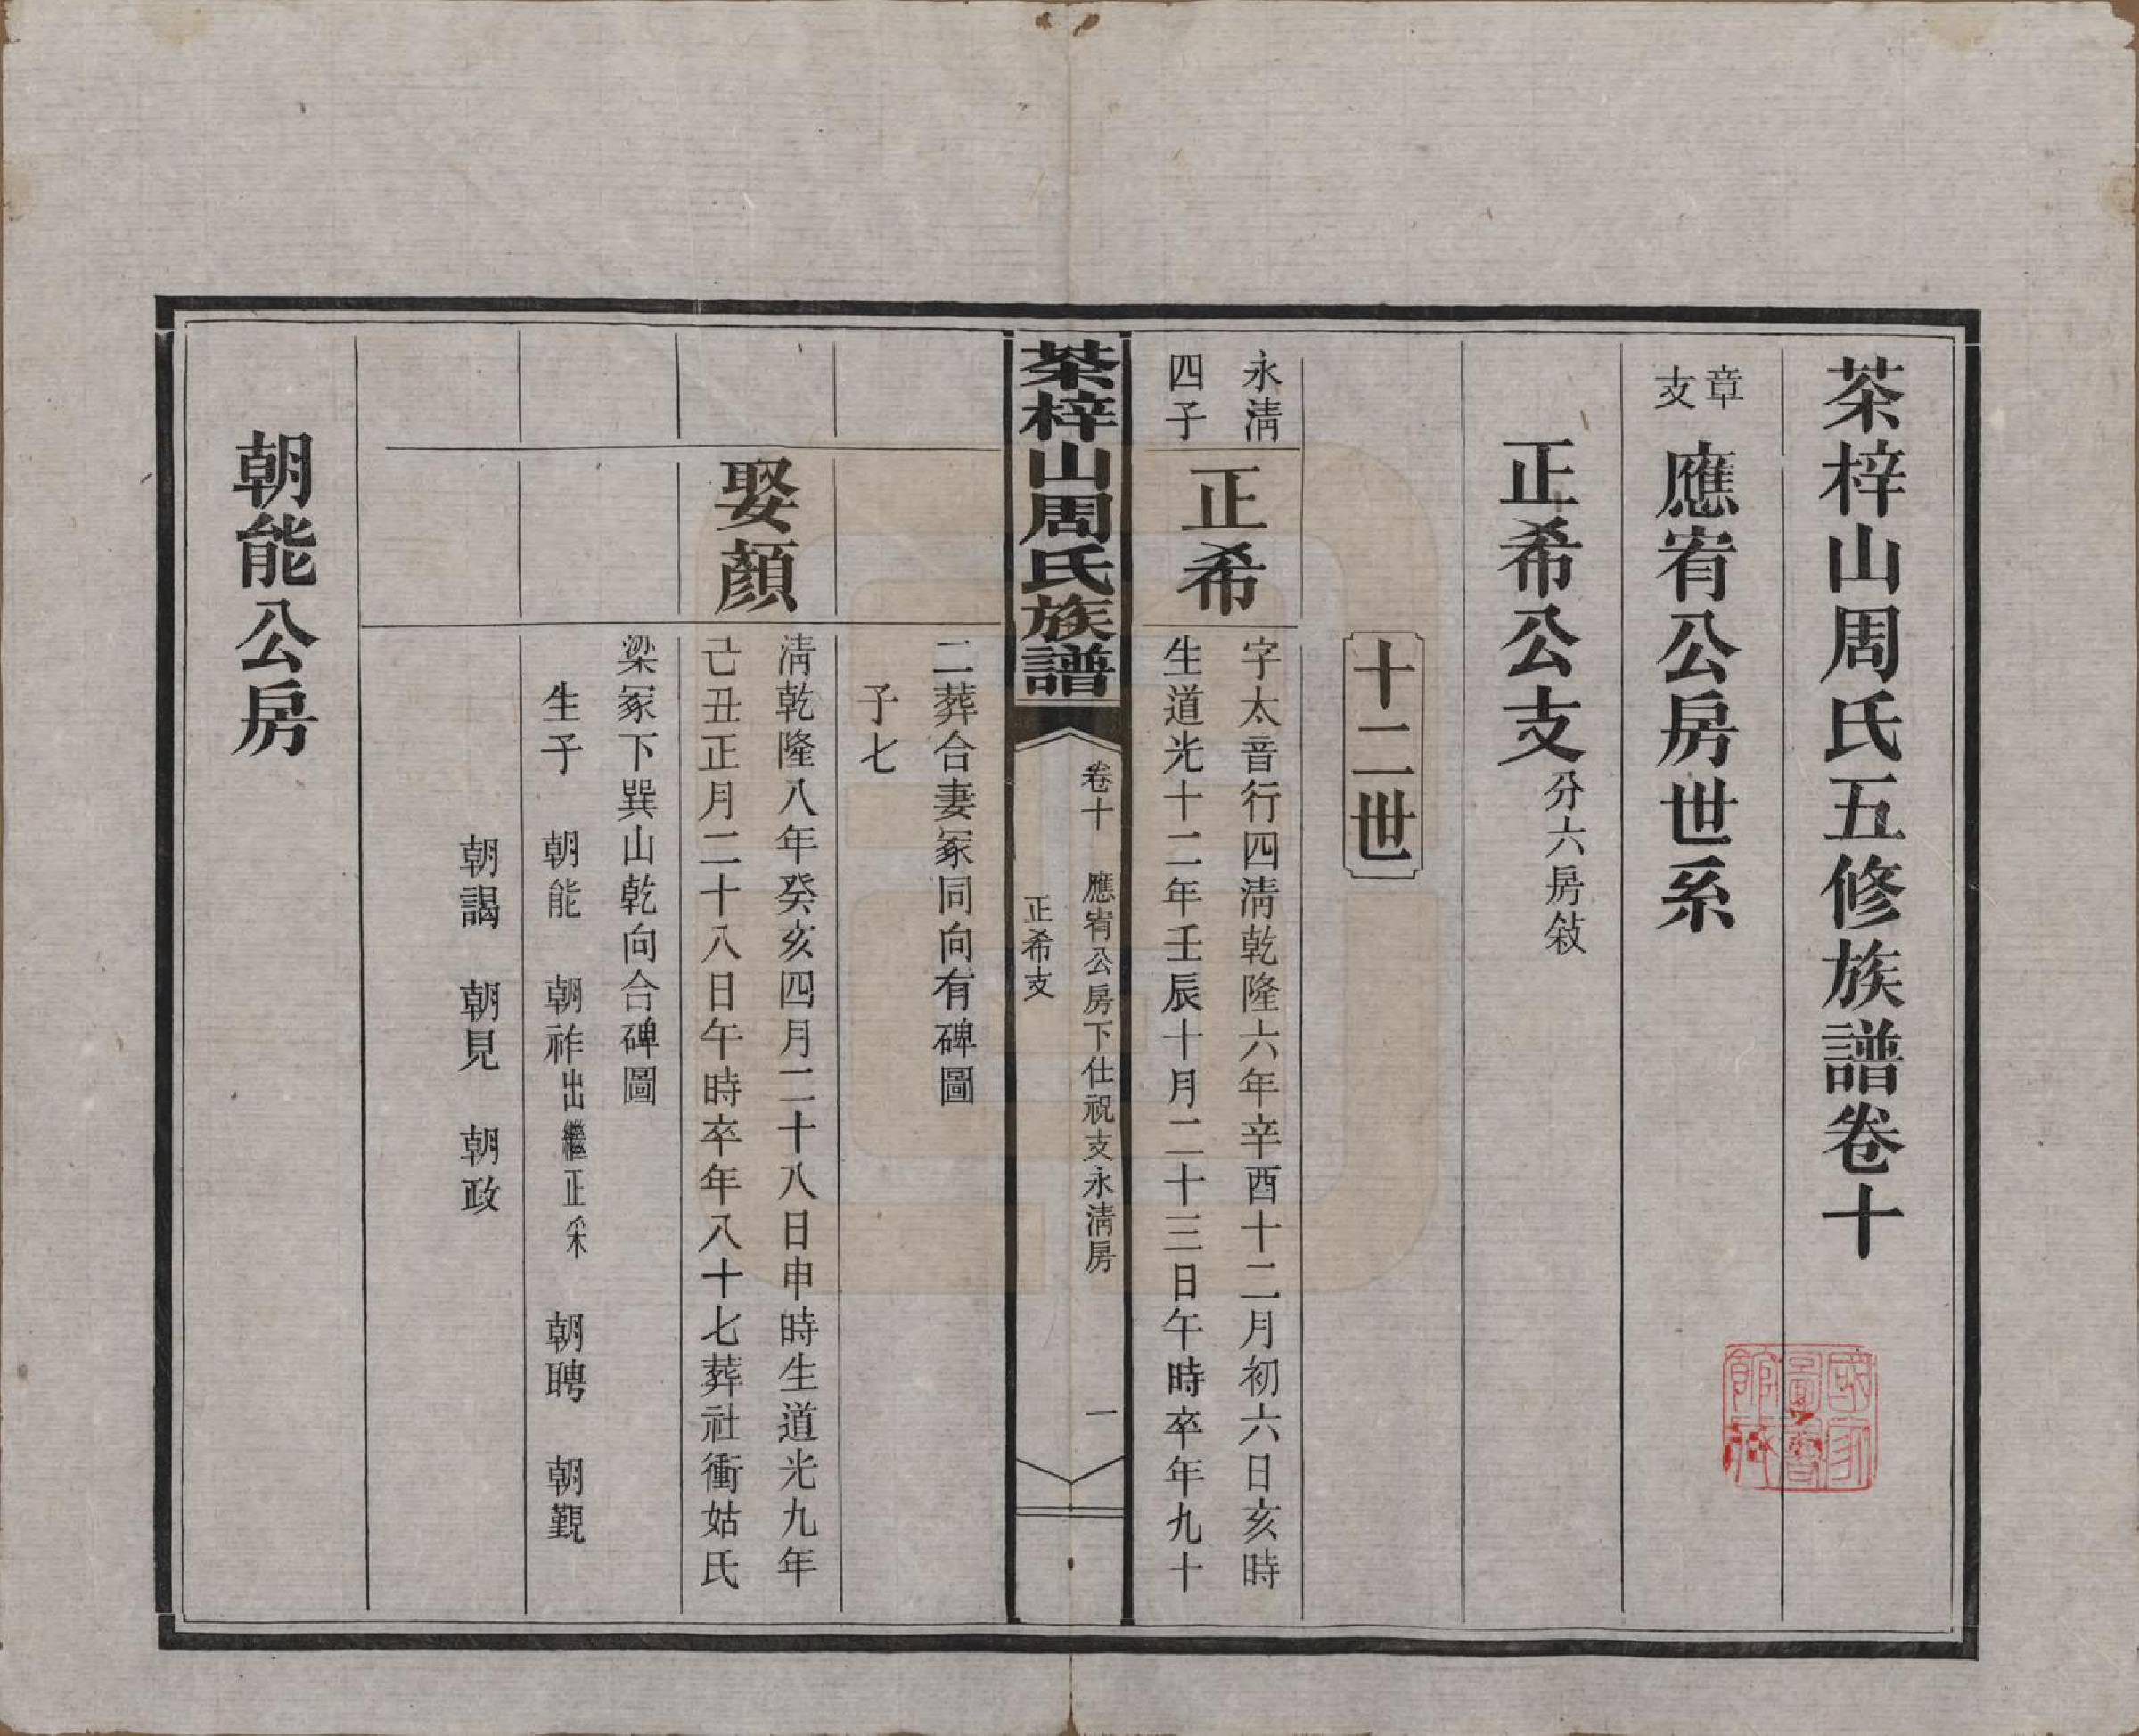 茶梓山周氏五修族譜卷十
章支 應宥公房世系
正希公支 分六房敍
十二世
永淸四子
正希
字太音行四淸乾隆六年辛酉十二月初六日亥時
生道光十二年壬辰十月二十三日午時卒年九十
茶梓山周氏族譜
卷十 應宥公房下仕祝支永淸房
正希支
一
二葬合妻冢同向有碑圖
子七
娶顏
淸乾隆八年癸亥四月二十八日申時生道光九年
己丑正月二十八日午時卒年八十七葬社衝姑氏
梁冢下巽山乾向合碑圖
生子 朝能 朝祚出繼正采 朝聘 朝觀
朝謁 朝見 朝政
朝能公房
國家圖書館藏